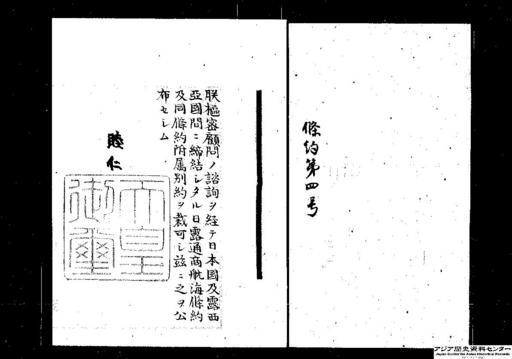 條約第四号
朕樞密顧問ノ諮詢ヲ経テ日本國及露西
亞國間ニ締結シタル日露通商航海條約
及同條約附属別約ヲ裁可シ茲ニ之ヲ公
布セシム
睦仁
天皇
御璽
アジア歴史資料センター
Japan Center for Asian Historical Records